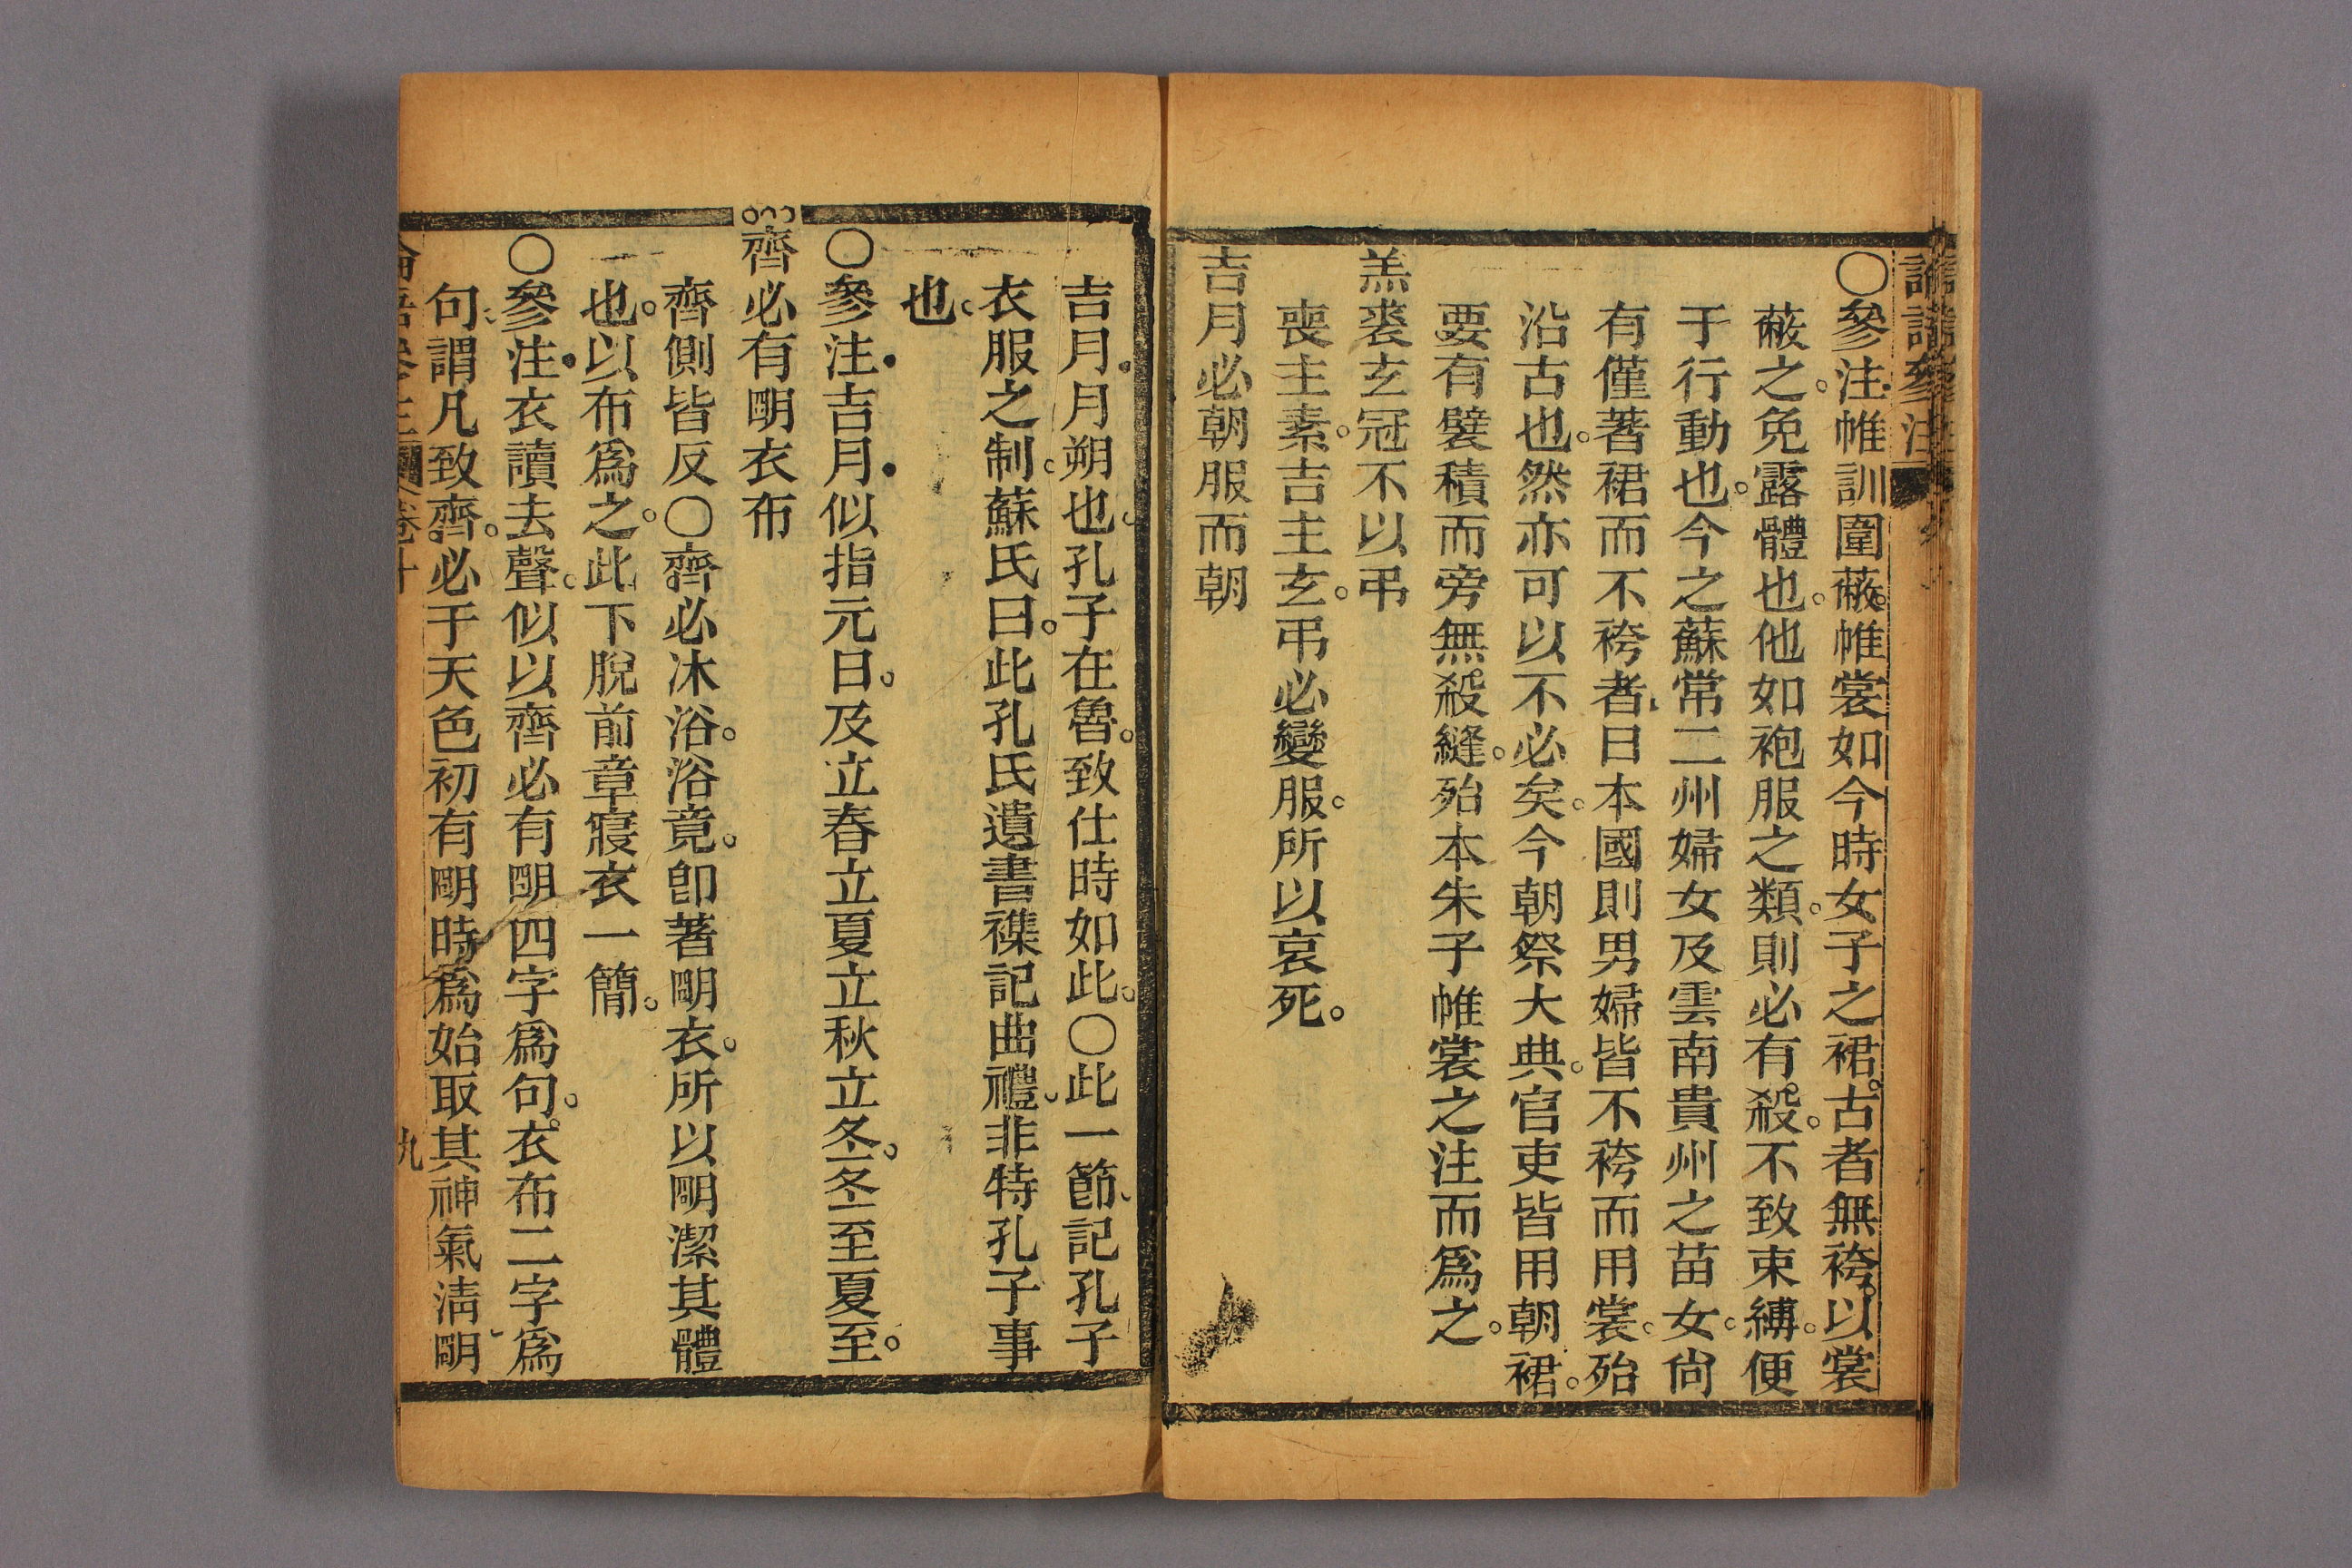 ○參注帷訓圍蔽帷裳如今時女子之裙。古者無袴。以裳
蔽之。免露體也。他如袍服之類。則必有殺。不致束縛。便
于行動也。今之蘇常二州婦女及雲南貴州之苗女。尙
有僅著裙而不袴者、日本國則男婦皆不袴而用裳。殆
沿古也。然亦可以不必矣。今朝祭大典。官吏皆用朝裙。
要有襞積而旁無殺縫。殆本朱子帷裳之注而爲之。
羔裘玄冠不以弔
喪主素。吉主玄。弔必變服。所以哀死。
吉月必朝服而朝
吉月。月朔也。孔子在魯。致仕時如此。○此一節、記孔子
衣服之制。蘇氏曰。此孔氏遺書襍記曲禮。非特孔子事
也。
○參注吉月似指元日。及立春立夏立秋立冬。冬至夏至。
齊必有朙衣布
齊側皆反○齊必沐浴。浴竟。卽著朙衣。所以朙潔其體
也。以布爲之。此下脫前章寢衣一簡。
○參注衣讀去聲。似以齊必有朙四字爲句。衣布二字爲
句。謂凡致齊。必于天色初有朙時爲始取其神氣淸朙
九